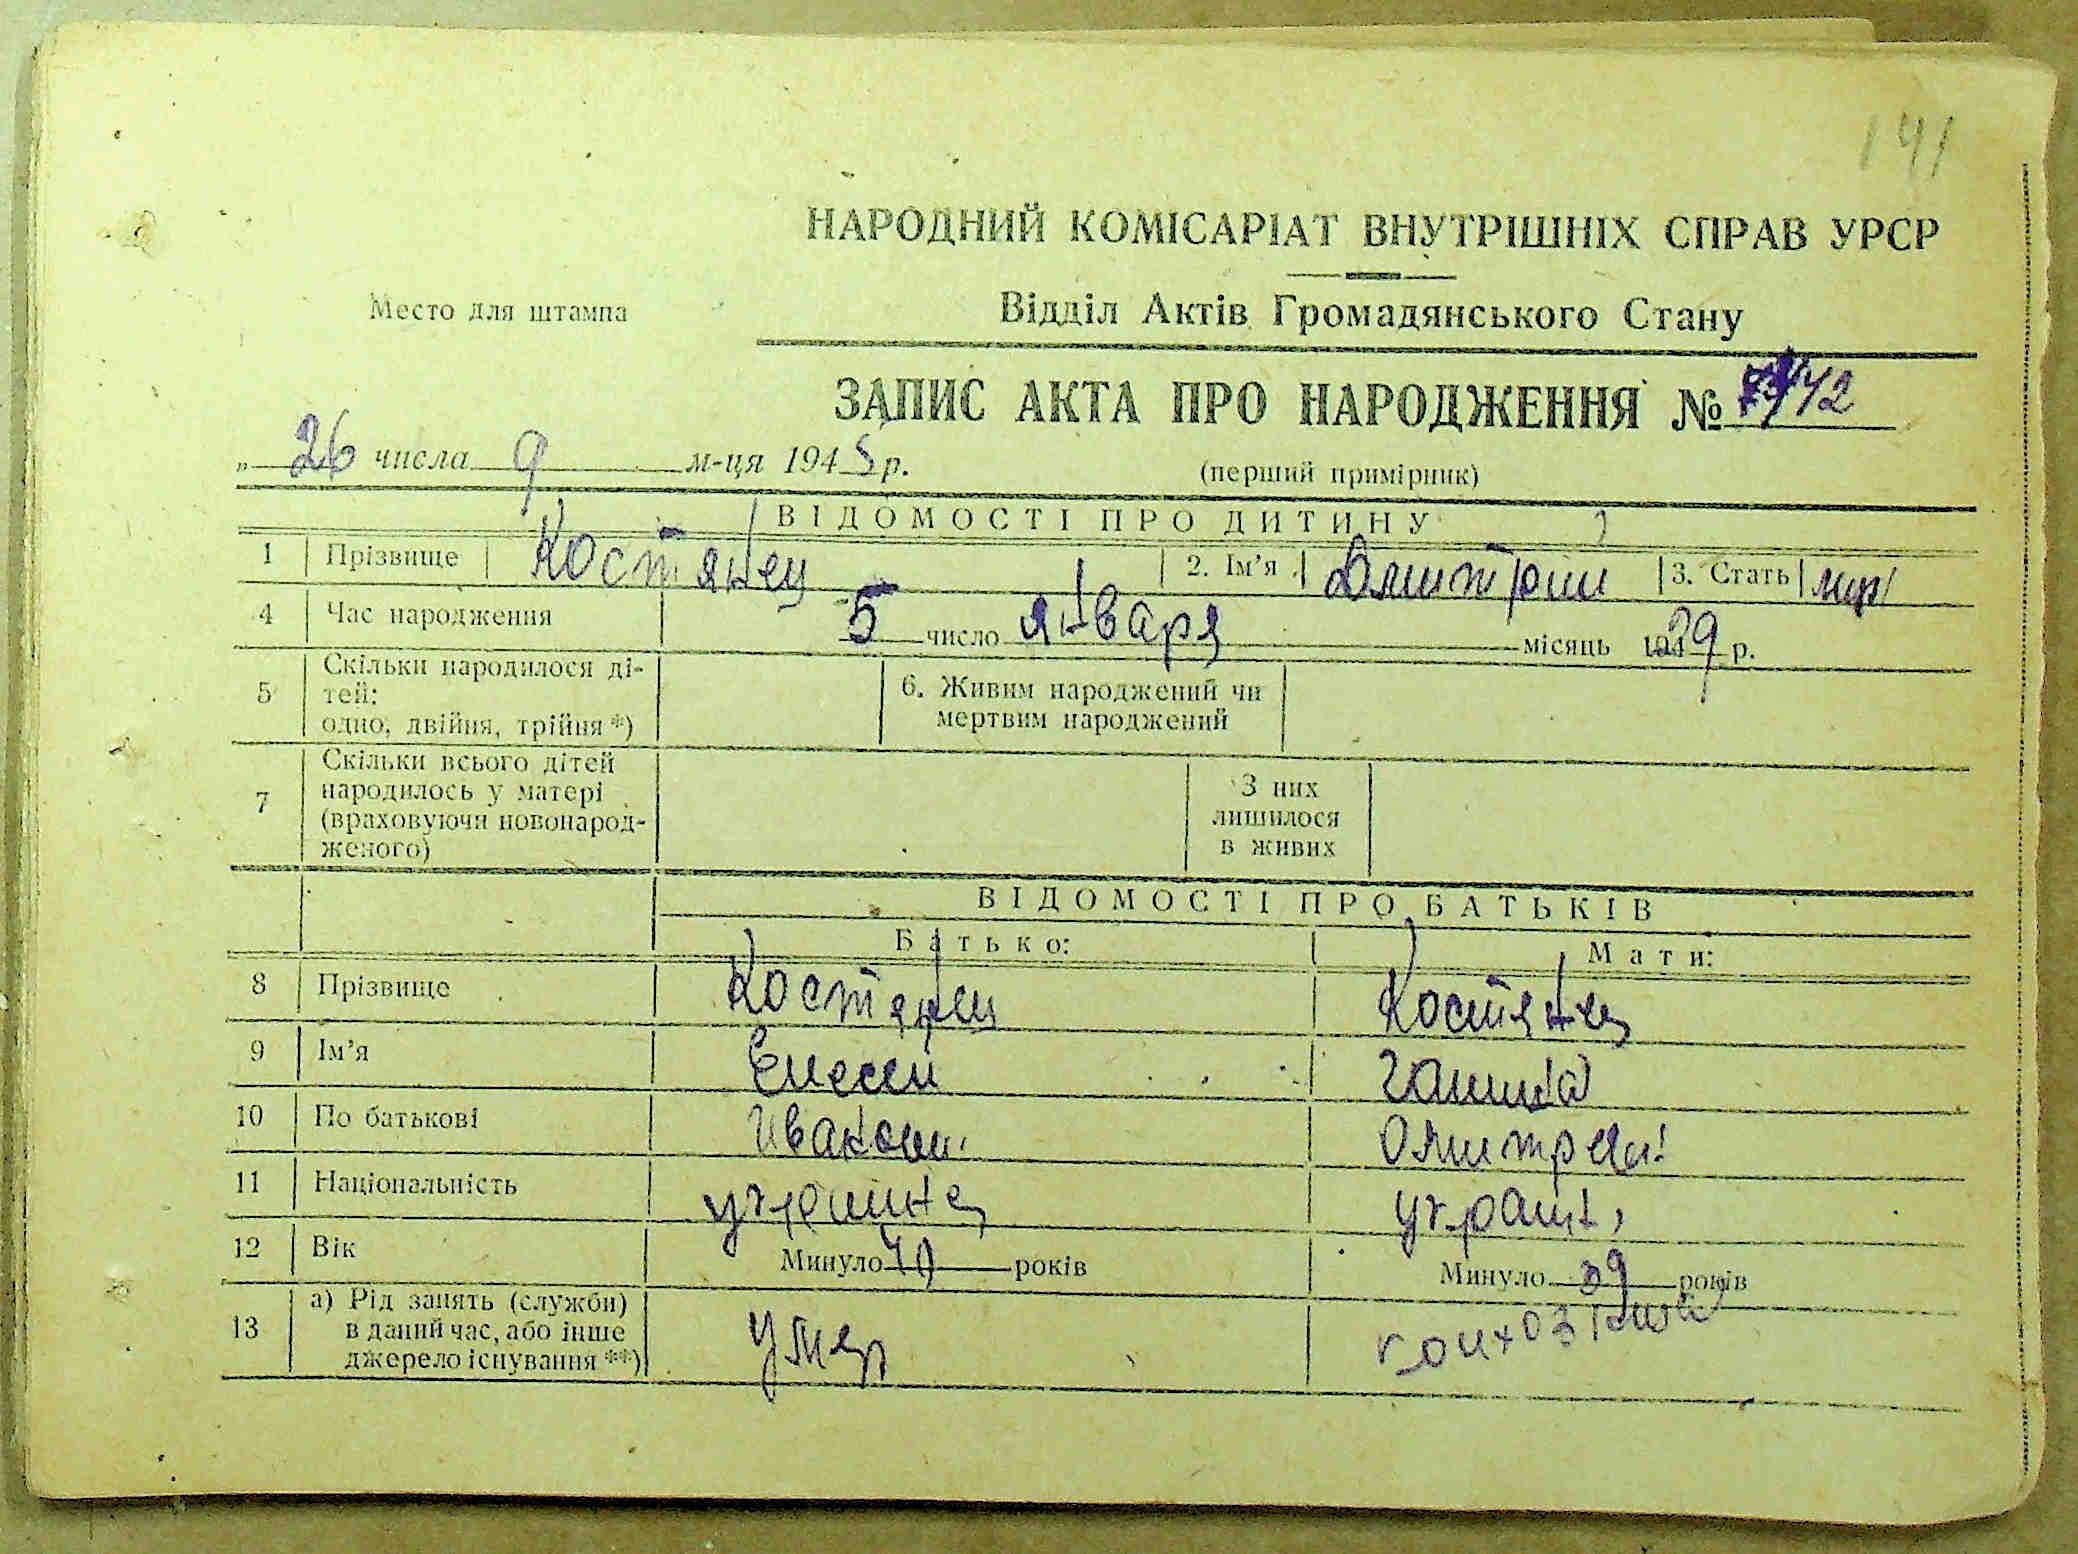 141
НАРОДНИЙ КОМІСАРІАТ ВНУТРІШНІХ СПРАВ УРСР
Место для штампа
Відділ Актів Громадянського Стану
ЗАПИС АКТА ПРО НАРОДЖЕННЯ № 42
„ 26 числа 9 м-ця 1945 р.
(перший примірник)
ВІДОМОСТІ ПРО ДИТИНУ
1 Прізвище Костянец 2. Ім'я Дмитрий 3. Стать муж
4 Час народження 5 число января місяць 1939 р.
5 Скільки народилося ді-
тей:
одно, двійня, трійня *)
6. Живим народжений чи
мертвим народжений
7 Скільки всього дітей
народилось у матері
(враховуючи новонарод-
женого)
З них
лишилося
в живих
ВІДОМОСТІ ПРО БАТЬКІВ
Батько: Мати:
8 Прізвище Костянец Костянец
9 Ім'я Елесей
10 По батькові Иванови. Дмитров.
11 Національність украинец украин,
12 Вік Минуло 40 років Минуло 39 років
13 а) Рід занять (служби)
в даний час, або інше
джерело існування **)
умер колхозница